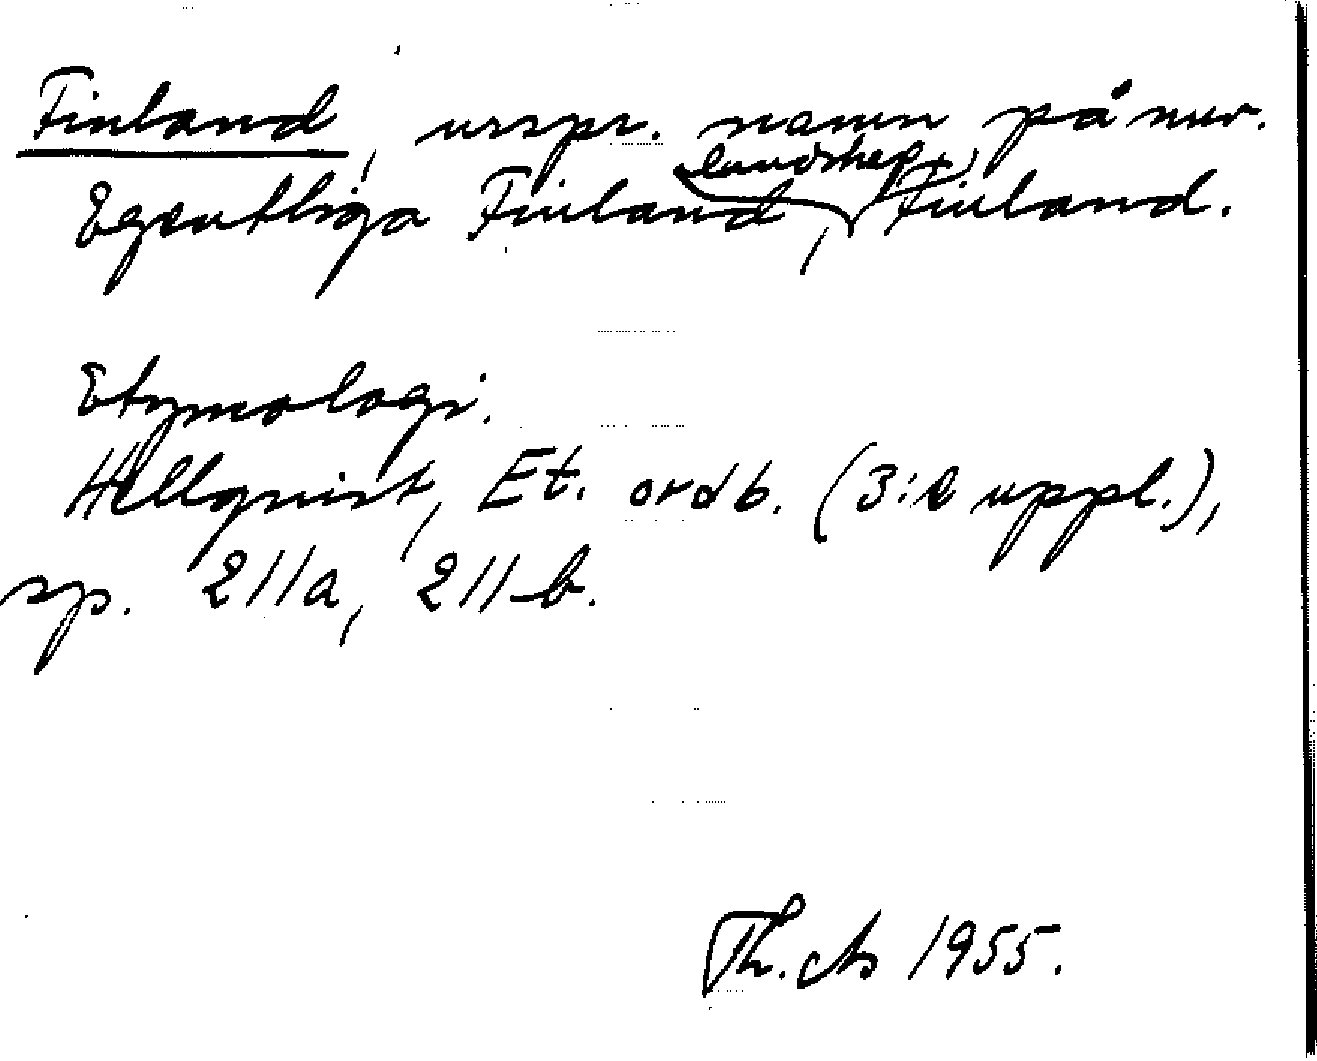 Finland, urspr. namn på nuv.
Egentliga Finland, landskap, Finland.
Etymologi.
Hellquist, Et. ordb. (3:e uppl.),
sp. 211a, 211b.
Th. 1955.